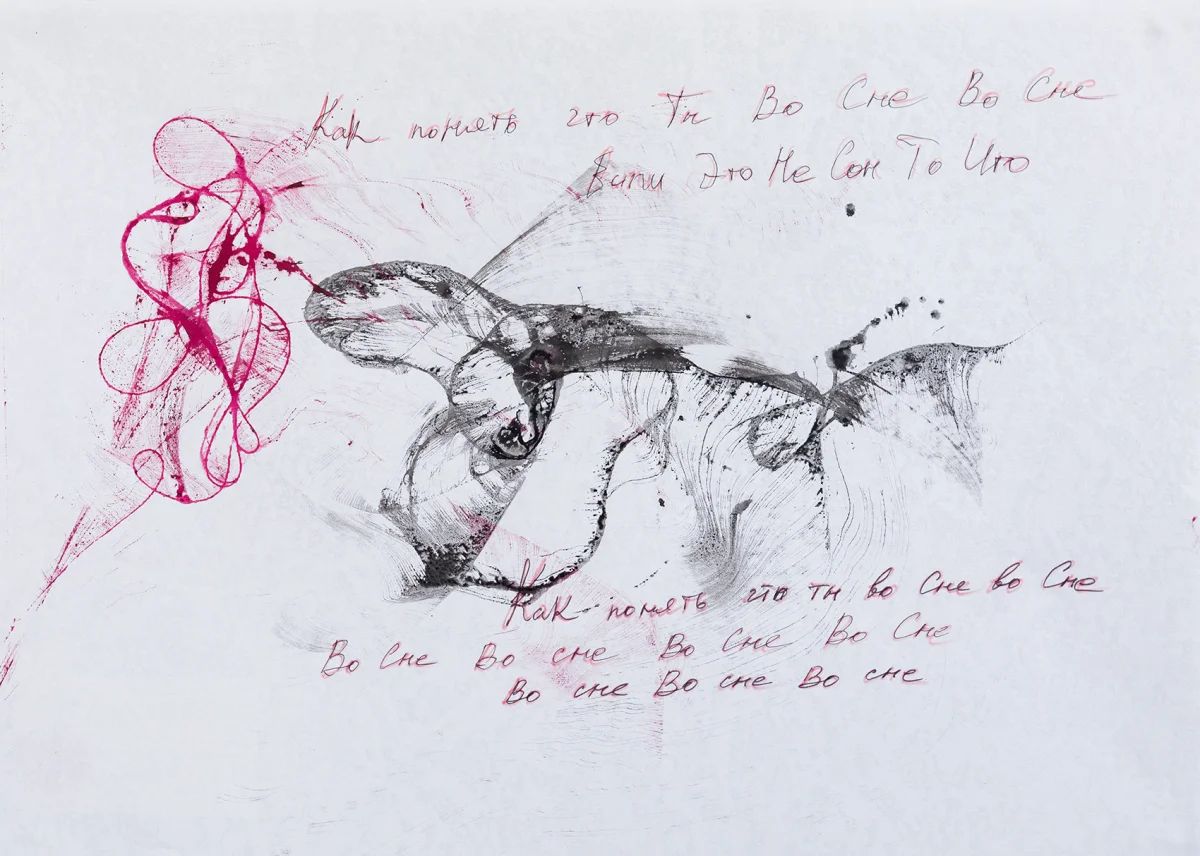 Как понять что Ты Во Сне Во Сне
Это Не Сон То Что
Как понять что ты во Сне во Сне
Во Сне Во сне Во Сне Во Сне
Во сне Во сне Во сне